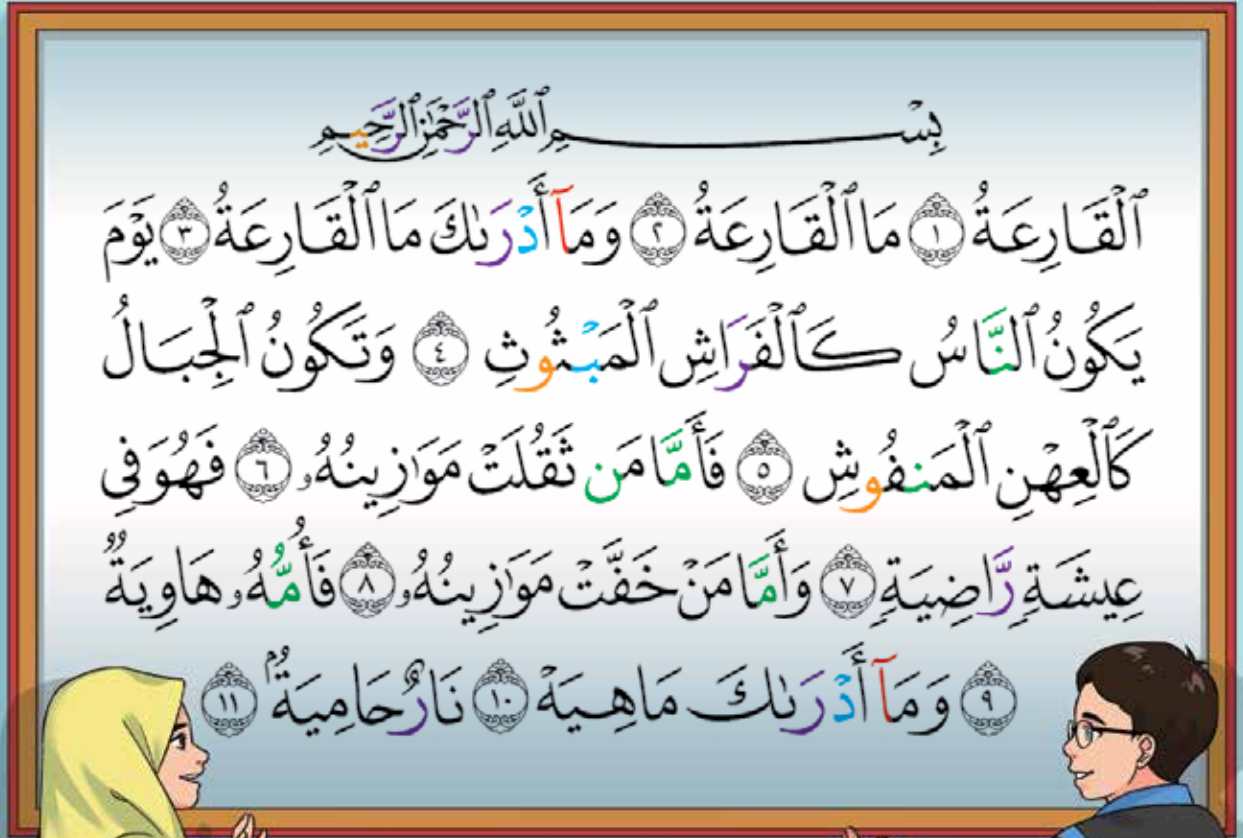 بِسْمِ ٱللَّهِ ٱلرَّحْمَٰنِ ٱلرَّحِيمِ
ٱلْقَارِعَةُ ١ مَا ٱلْقَارِعَةُ ٢ وَمَآ أَدْرَىٰكَ مَا ٱلْقَارِعَةُ ٣ يَوْمَ
يَكُونُ ٱلنَّاسُ كَٱلْفَرَاشِ ٱلْمَبْثُوثِ ٤ وَتَكُونُ ٱلْجِبَالُ
كَٱلْعِهْنِ ٱلْمَنفُوشِ ٥ فَأَمَّا مَن ثَقُلَتْ مَوَٰزِينُهُۥ ٦ فَهُوَ فِى
عِيشَةٍ رَّاضِيَةٍ ٧ وَأَمَّا مَنْ خَفَّتْ مَوَٰزِينُهُۥ ٨ فَأُمُّهُۥ هَاوِيَةٌ
٩ وَمَآ أَدْرَىٰكَ مَا هِيَهْ ١٠ نَارٌ حَامِيَةٌۢ ١١